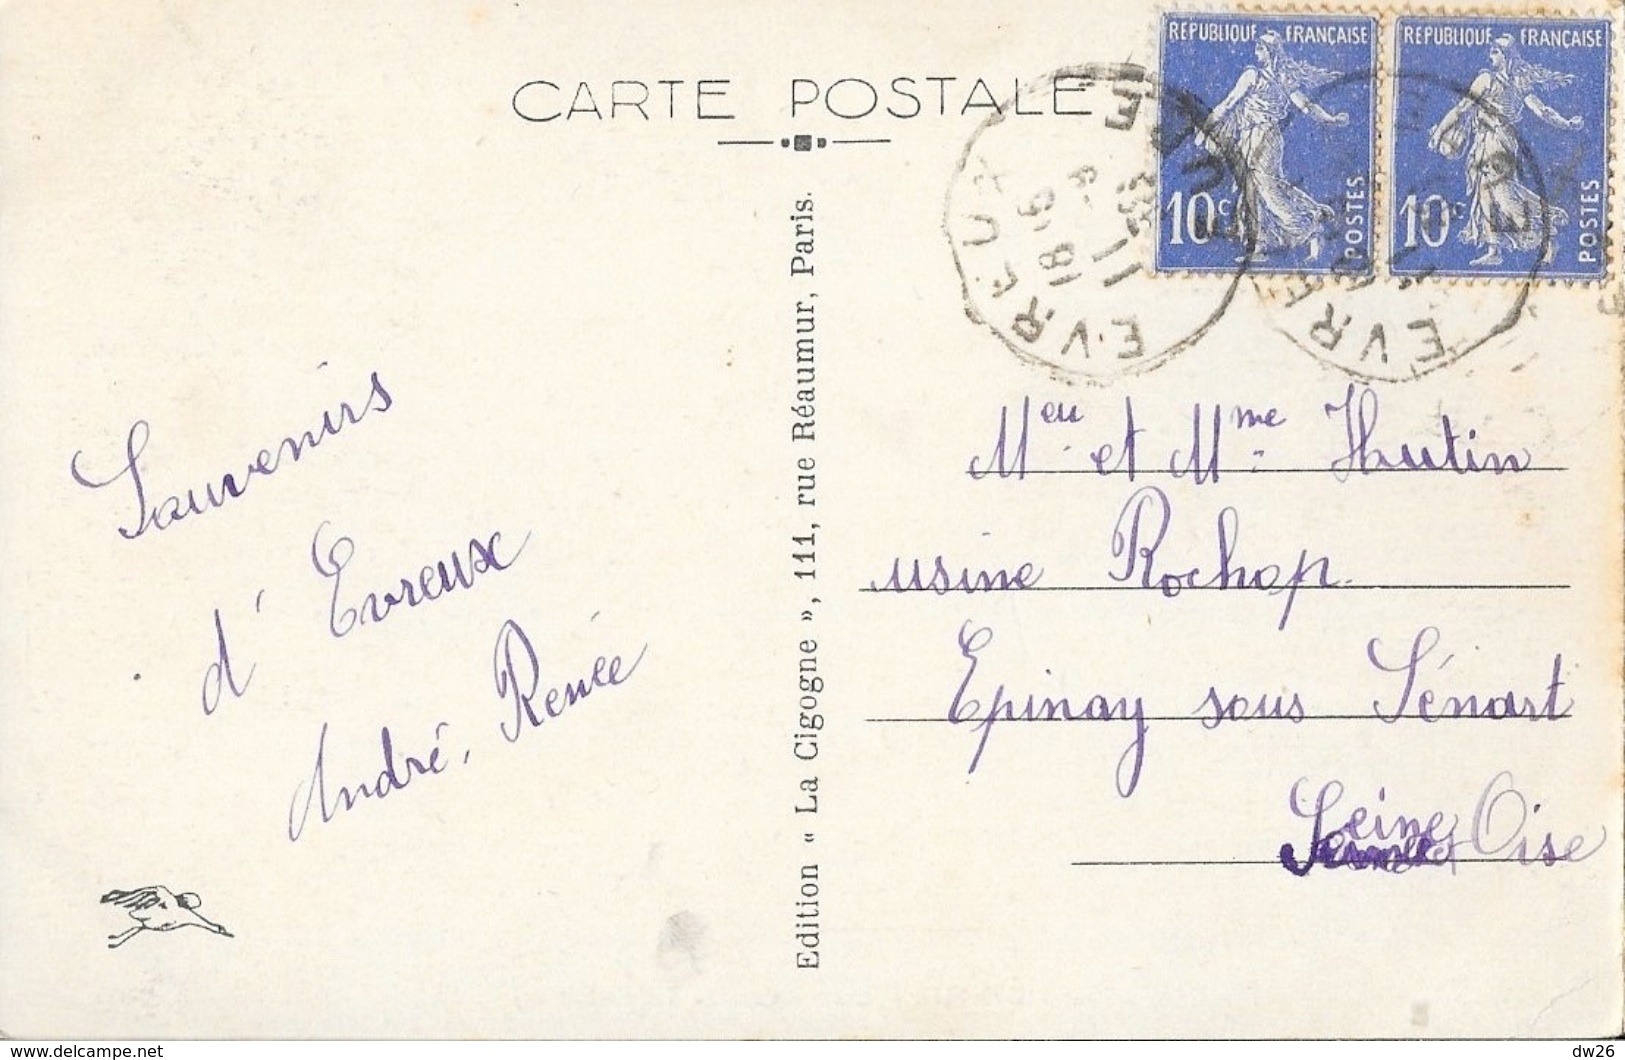 CARTE POSTALE
RÉPUBLIQUE FRANÇAISE
10c
POSTES
RÉPUBLIQUE FRANÇAISE
10c
POSTES
EVREUX
EURE
18 45
11
EVRE
EURE
Souvenirs
d'Evreux
André, Renée
Edition « La Cigogne », 111, rue Réaumur, Paris.
Meu et Mme Hutin
usine Rochop
Epinay sous Sénart
Seine Oise
www.delcampe.net
dw26